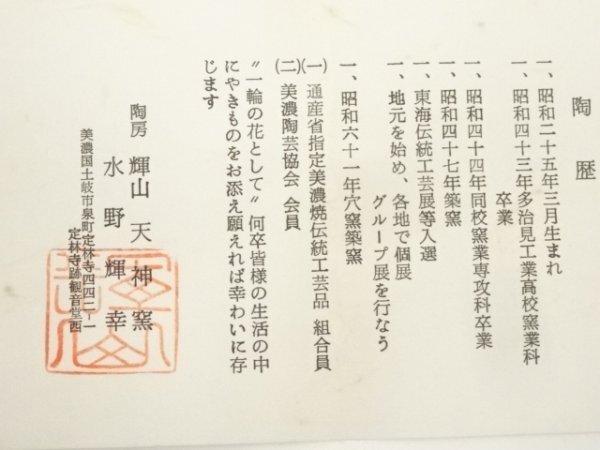 陶歴
一、昭和二十五年三月生まれ
一、昭和四十三年多治見工業高校窯業科
卒業
一、昭和四十四年同校窯業専攻科卒業
一、昭和四十七年築窯
一、東海伝統工芸展等入選
一、地元を始め、各地で個展
グループ展を行なう
一、昭和六十一年穴窯築窯
(一)通産省指定美濃焼伝統工芸品 組合員
(二)美濃陶芸協会 会員
〝一輪の花として〟何卒皆様の生活の中
にやきものをお添え願えれば幸わいに存
じます
陶房 輝山 天神窯
水野輝幸
美濃国土岐市泉町定林寺四四二ー一
定林寺跡観音堂西